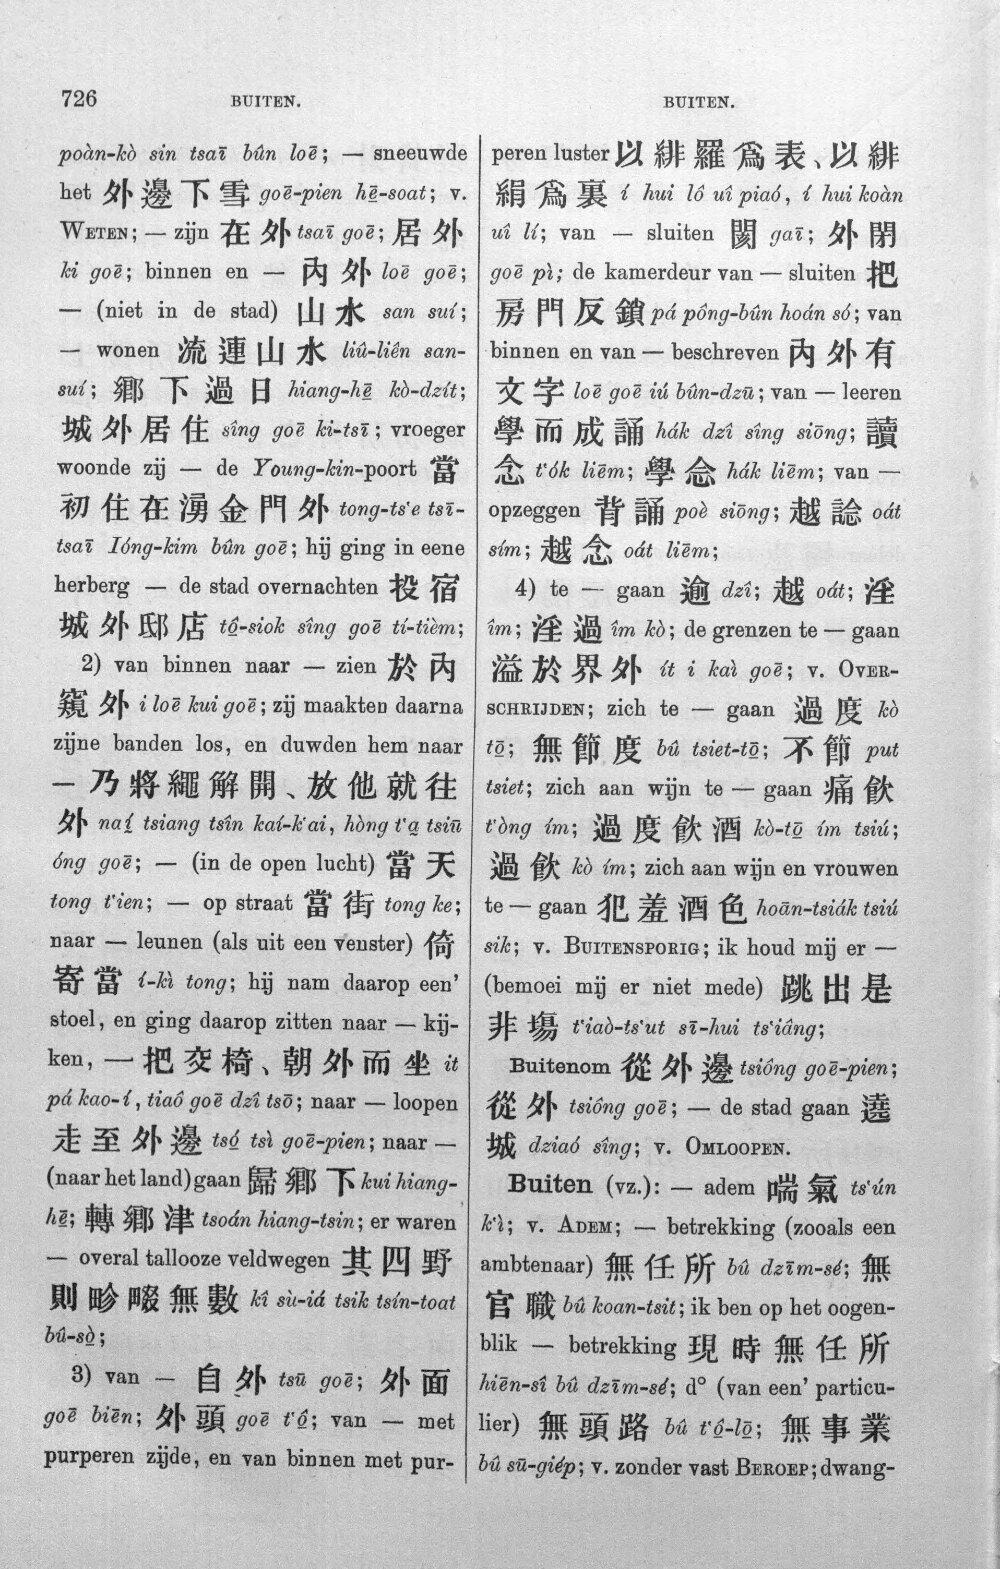 726
BUITEN.
BUITEN.
poàn-kò sin tsaī bûn loē; — sneeuwde
het 外邊下雪 goē-pien hē̠-soat; v.
WETEN; — zijn 在外 tsaī goē; 居外
ki goē; binnen en — 內外 loē goē;
— (niet in de stad) 山水 san suí;
— wonen 流連山水 liû-liên san-
suí; 鄉下過日 hiang-hē̠ kò-dzít;
城外居住 sîng goē ki-tsī; vroeger
woonde zij — de Young-kin-poort 當
初住在湧金門外 tong-ts‘e tsī-
tsaī Ióng-kim bûn goē; hij ging in eene
herberg — de stad overnachten 投宿
城外邸店 tô̠-siok sîng goē tí-tièm;
2) van binnen naar — zien 於內
窺外 i loē kui goē; zij maakten daarna
zijne banden los, en duwden hem naar
— 乃將繩解開、放他就往
外 naí̠ tsiang tsîn kaí-k‘ai, hòng t‘a̠ tsiū
óng goē; — (in de open lucht) 當天
tong t‘ien; — op straat 當街 tong ke;
naar — leunen (als uit een venster) 倚
寄當 í-kì tong; hij nam daarop een’
stoel, en ging daarop zitten naar — kij-
ken, 一把交椅、朝外而坐 it
pá kao-í, tiaô goē dzî tsō; naar — loopen
走至外邊 tsó̠ tsì goē-pien; naar —
(naar het land) gaan 歸鄉下 kui hiang-
hē̠; 轉鄉津 tsoán hiang-tsin; er waren
— overal tallooze veldwegen 其四野
則畛畷無數 kî sù-iá tsik tsín-toat
bû-sò̠;
3) van — 自外 tsū goē; 外面
goē biēn; 外頭 goē t‘ô̠; van — met
purperen zijde, en van binnen met pur-
peren luster 以緋羅爲表、以緋
絹爲裏 í hui lô uî piaó, í hui koàn
uî lí; van — sluiten 閡 gaī; 外閉
goē pì; de kamerdeur van — sluiten 把
房門反鎖 pá pông-bûn hoán só; van
binnen en van — beschreven 內外有
文字 loē goē iú bûn-dzū; van — leeren
學而成誦 hák dzî sîng siōng; 讀
念 t‘ók liēm; 學念 hák liēm; van —
opzeggen 背誦 poè siōng; 越諗 oát
sím; 越念 oát liēm;
4) te — gaan 逾 dzî; 越 oát; 淫
îm; 淫過 îm kò; de grenzen te — gaan
溢於界外 ít i kaì goē; v. OVER-
SCHRIJDEN; zich te — gaan 過度 kò
tō̠; 無節度 bû tsiet-tō̠; 不節 put
tsiet; zich aan wijn te — gaan 痛飲
t‘òng ím; 過度飲酒 kò-tō̠ ím tsiú;
過飲 kò ím; zich aan wijn en vrouwen
te — gaan 犯羞酒色 hoān-tsiák tsiú
sik; v. BUITENSPORIG; ik houd mij er —
(bemoei mij er niet mede) 跳出是
非塲 t‘iaò-ts‘ut sī-hui ts‘iâng;
Buitenom 從外邊 tsiông goē-pien;
從外 tsiông goē; — de stad gaan 遶
城 dziaó sîng; v. OMLOOPEN.
Buiten (vz.): — adem 喘氣 ts‘ún
k‘ì; v. ADEM; — betrekking (zooals een
ambtenaar) 無任所 bû dzīm-sé; 無
官職 bû koan-tsit; ik ben op het oogen-
blik — betrekking 現時無任所
hiēn-sî bû dzīm-sé; d° (van een’ particu-
lier) 無頭路 bû t‘ô̠-lō̠; 無事業
bû sū-giép; v. zonder vast BEROEP; dwang-